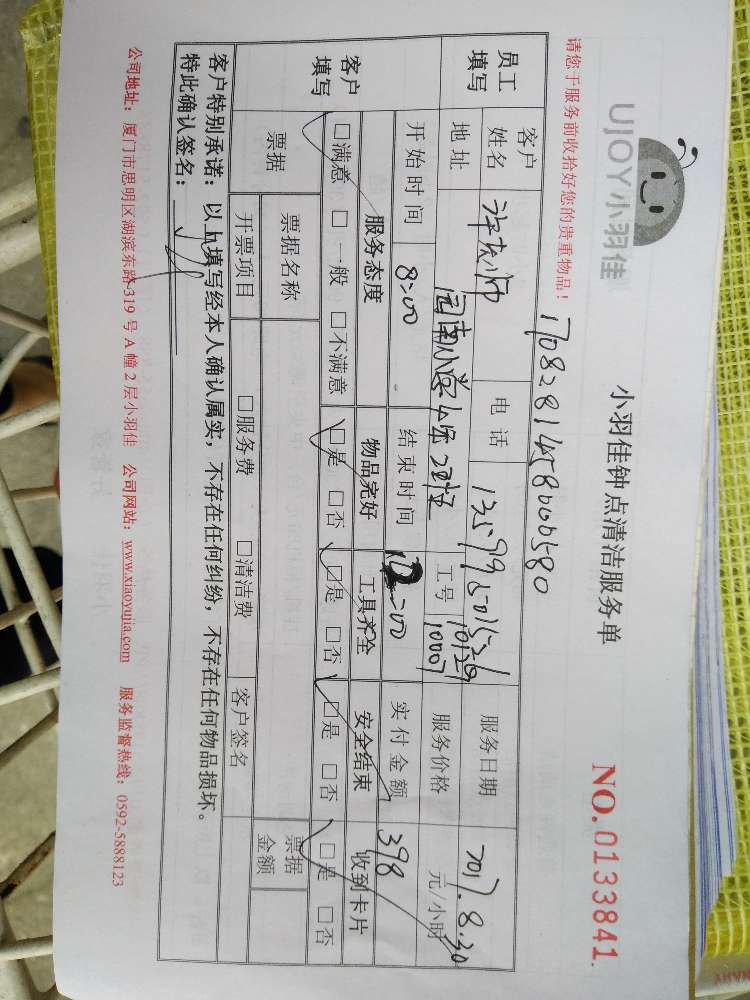 UJOY小羽佳
小羽佳钟点清洁服务单
NO.0133841.
请您于服务前收拾好您的贵重物品!
170828145800580
员工填写
客户姓名
电话
服务日期
2017.8.30
地址
工号
服务价格
元/小时
开始时间
8:00
结束时间
12:00
实付金额
398
客户填写
服务态度
物品完好
工具齐全
安全结束
收到卡片
□满意 □一般 □不满意
□是 □否
□是 □否
□是 □否
□是 □否
票据
票据名称
票据金额
开票项目
□服务费 □清洁费
客户签名
客户特别承诺:以上填写经本人确认属实,不存在任何纠纷,不存在任何物品损坏。
特此确认签名:
公司地址:厦门市思明区湖滨东路319号A幢2层小羽佳 公司网站:www.xiaoyujia.com 服务监督热线:0592-5888123